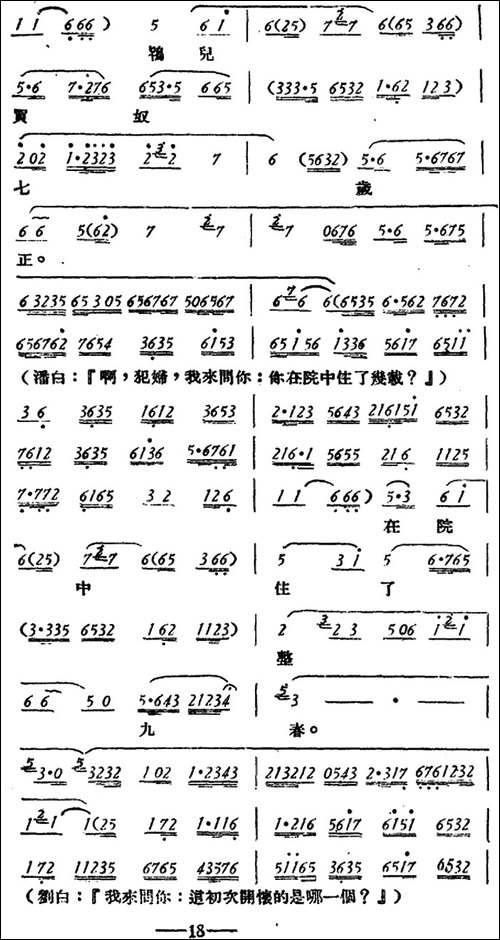 1 1 (6 6 6) 5 6 i | 6(25) 7 2 7 6(65 366)
鴇 兒
5·6 7·276 653·5 665 | (333·5 6532 1·62 123)
買 奴
202 1·2323 2 3 2 7 | 6 (5632) 5·6 5·6767
七 歲
6 6 5(62) 7 2 7 | 2 7 0676 5·6 5·675
正。
63235 65305 656767 506567 | 6 7 6 6(6535 6·562 7672
656762 7654 3635 6153 | 65156 1336 5617 6511
(潘白:『啊,犯婦,我來問你:你在院中住了幾載?』)
36 3635 1612 3653 | 2·123 5643 216151 6532
7612 3635 6136 5·6761 | 216·1 5655 216 1125
7·772 6165 32 126 | 1 1 666) 5·3 6 i
在 院
6(25) 7 2 7 6(65 366) | 5 3 i 5 6·765
中 住 了
(3·335 6532 162 1123) | 2 3 2 3 506 i 2 i
整
6 6 50 5·643 21234 | 5 3 — · —
九 春。
5 3·0 5 3232 102 1·2343 | 213212 0543 2·317 6761232
1 2 1 1(25 172 1·116 | 1·216 5617 6151 6532
172 11235 6765 43576 | 51165 3635 6517 6532
(劉白:『我來問你:這初次開懷的是哪一個?』)
—18—